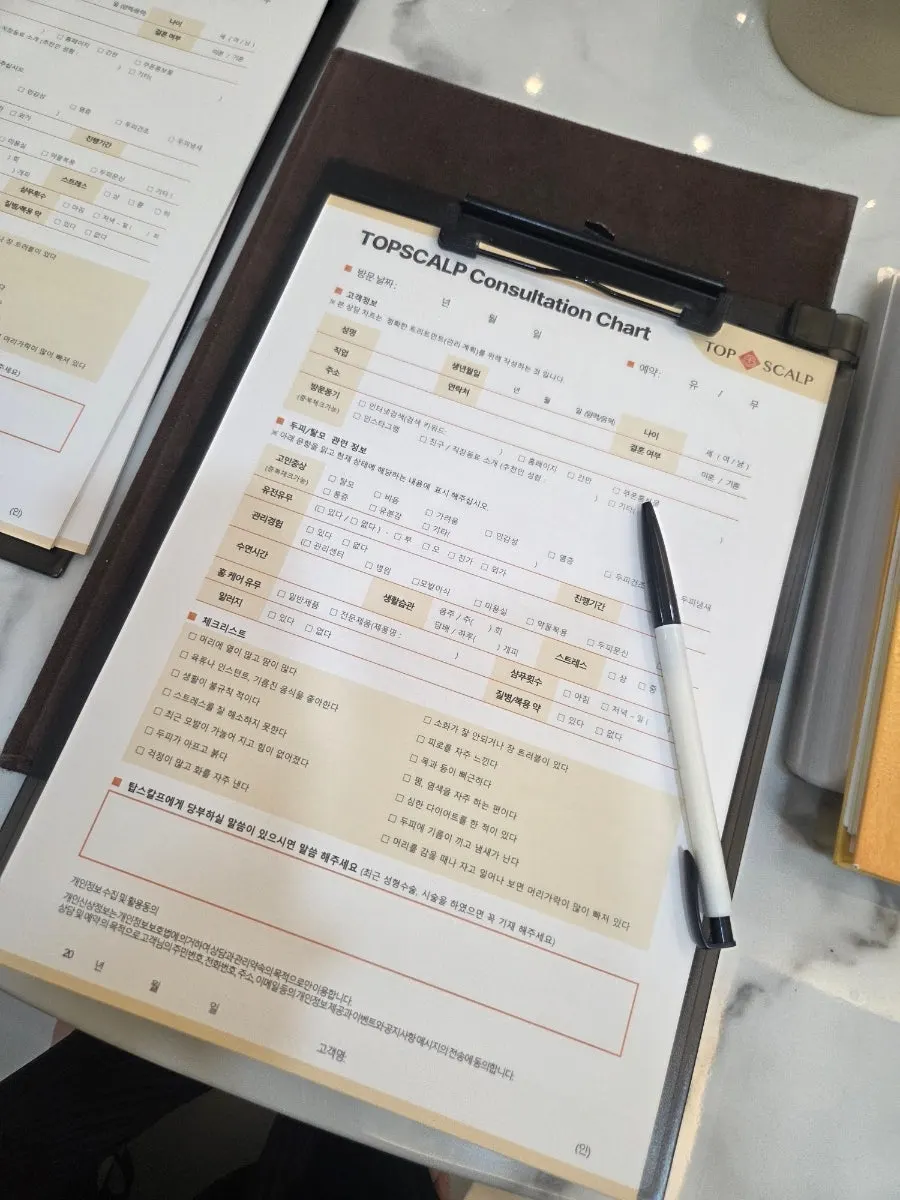 TOPSCALP Consultation Chart
TOP SCALP
방문 날짜: 년 월 일
예약: 유 / 무
고객정보
※ 본 상담 차트는 정확한 트리트먼트(관리 계획)를 위해 작성하는 것 입니다.
성명 생년월일 년 월 일 (양력/음력) 나이 세 ( 여 / 남 )
직업 연락처 결혼 여부 미혼 / 기혼
주소
방문동기 (중복체크가능)
□ 인터넷검색(검색 키워드: ) □ 홈페이지 □ 간판
□ 인스타그램 □ 친구 / 직장동료 소개 (추천인 성함 : ) □ 기타(
두피/탈모 관련 정보
※ 아래 문항을 읽고 현재 상태에 해당하는 내용에 표시 해주십시오.
고민증상 (중복체크가능)
□ 탈모 □ 비듬 □ 가려움 □ 민감성 □ 염증 □ 두피건조 두피냄새
□ 통증 □ 유분감 □ 기타( )
유전유무 (□ 있다 / □ 없다) · □ 부 □ 모 □ 친가 □ 외가
관리경험 □ 있다 □ 없다 진행기간
(□ 관리센터 □ 병원 □ 모발이식 □ 미용실 □ 약물복용 □ 두피문신
수면시간 생활습관 음주 / 주( ) 회 스트레스 □ 상 □ 중
담배 / 하루( ) 개피
홈 케어 유무 □ 일반제품 □ 전문제품(제품명 : ) 샴푸횟수 □ 아침 □ 저녁 - 일(
알러지 □ 있다 □ 없다 질병/복용 약 □ 있다 □ 없다
체크리스트
□ 머리에 열이 많고 땀이 많다
□ 육류나 인스턴트, 기름진 음식을 좋아한다
□ 생활이 불규칙 적이다
□ 스트레스를 잘 해소하지 못한다
□ 최근 모발이 가늘어 지고 힘이 없어졌다
□ 두피가 아프고 붉다
□ 걱정이 많고 화를 자주 낸다
□ 소화가 잘 안되거나 장 트러블이 있다
□ 피로를 자주 느낀다
□ 목과 등이 뻐근하다
□ 펌, 염색을 자주 하는 편이다
□ 심한 다이어트를 한 적이 있다
□ 두피에 기름이 끼고 냄새가 난다
□ 머리를 감을 때나 자고 일어나 보면 머리가락이 많이 빠져 있다
탑스칼프에게 당부하실 말씀이 있으시면 말씀 해주세요 (최근 성형수술, 시술을 하였으면 꼭 기재 해주세요)
개인정보 수집 및 활용동의
개인신상정보는 개인정보보호법에 의거하여 상담과 관리약속의 목적으로만 이용합니다.
상담 및 예약의 목적으로 고객님의 주민번호, 전화번호, 주소, 이메일 등의 개인정보 제공과 이벤트와 공지사항 메시지의 전송에 동의합니다.
20 년 월 일
고객명: (인)
나이 세 ( 여 / 남 )
결혼 여부 미혼 / 기혼
□ 홈페이지 □ 간판
□ 기타( )
□ 민감성 □ 염증 □ 두피건조 □ 두피냄새
□ 외가
진행기간
□ 미용실 □ 약물복용 □ 두피문신 □ 기타(
) 회 스트레스 □ 상 □ 중 □ 하
) 개피
샴푸횟수 □ 아침 □ 저녁 - 일( ) 회
질병/복용 약 □ 있다 □ 없다
장 트러블이 있다
머리가락이 많이 빠져 있다
(인)